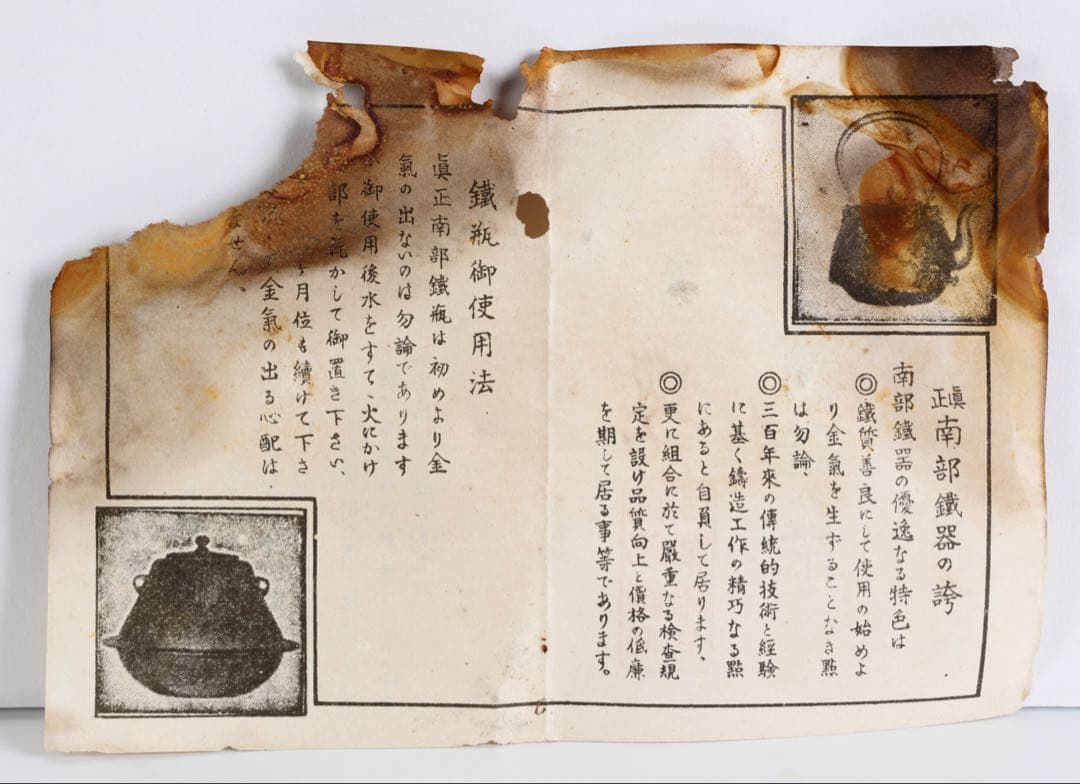 正眞南部鐵器の誇
南部鐵器の優逸なる特色は
◎鐵質善良にして使用の始めよ
り金氣を生ずることなき點
は勿論、
◎三百年來の傳統的技術と経験
に基く鑄造工作の精巧なる點
にあると自負して居ります、
◎更に組合に於て嚴重なる検査規
定を設け品質向上と價格の低廉
を期して居る事等であります。
鐵瓶御使用法
眞正南部鐵瓶は初めより金
氣の出ないのは勿論であります
御使用後水をすて、火にかけ
部を乾かして御置き下さい、
ヶ月位も續けて下さ
金氣の出る心配は
ません、